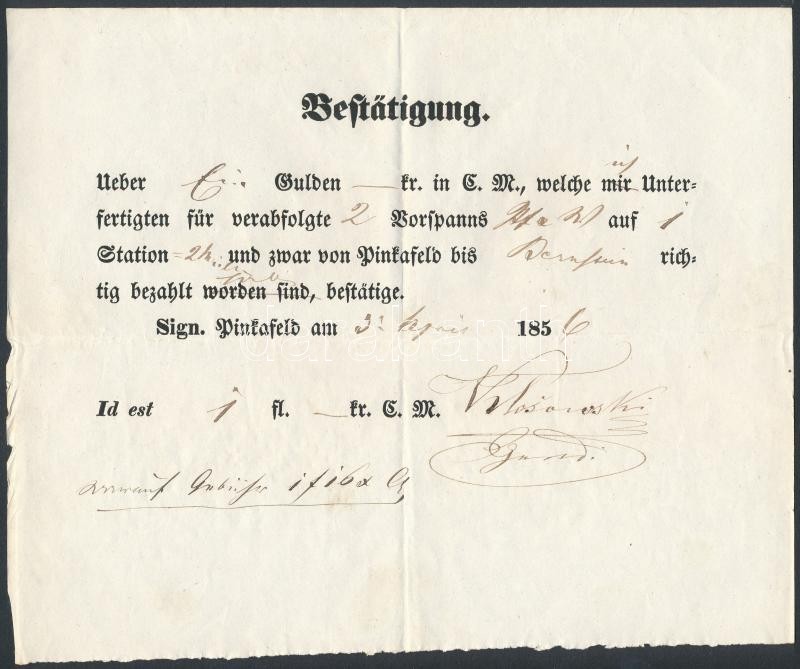 Beſtätigung.
ich
Ueber Ein Gulden — kr. in C. M., welche mir Unter-
fertigten für verabfolgte 2 Vorſpanns auf 1
Station und zwar von Pinkafeld bis Bernstein rich-
tig bezahlt worden ſind, beſtätige.
Sign. Pinkafeld am 3: April 1856
Id est 1 fl. — kr. C. M. Klosowski
worauf Gebühr 1 f 16 x